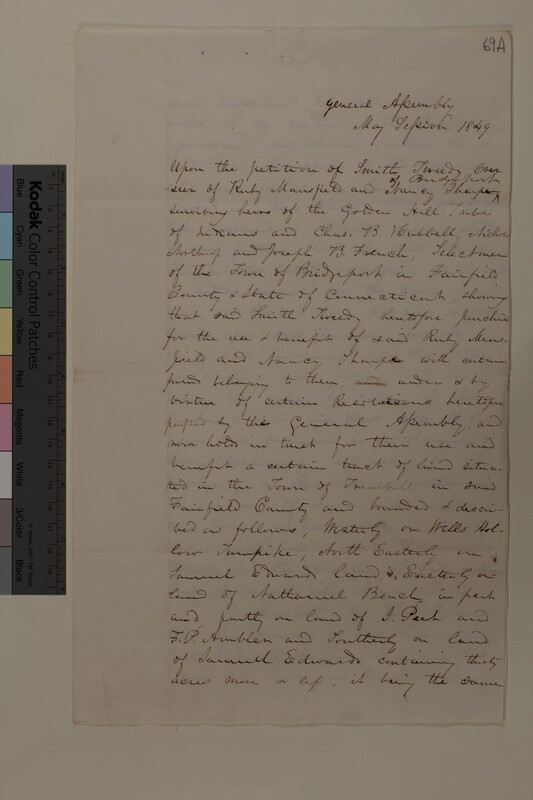 69A
General Assembly
May Session 1849
Upon the petition of Smith Tweedy Over
-seer of Ruby Mansfield and Nancy Sharpe
surviving heirs of the Golden Hill Tribe
of Indians and Chas. B Hubbell,
Northrop and Joseph B. French, Selectmen
of the Town of Bridgeport in Fairfield
County & State of Connecticut, showing
that said Smith Tweedy heretofore purchas
for the use & benefit of said Ruby Mans-
field and Nancy Sharpe with certain
funds belonging to them, and under & by
virtue of certain Resolutions heretofore
passed by the General Assembly and
now holds in trust for their use and
benefit a certain tract of land situa-
ted in the Town of Trumbull in said
Fairfield County and bounded & descri-
bed as follows, Westerly on Wells Hol-
low Turnpike, North Easterly on
Samuel Edwards land, Easterly on
land of Nathaniel Beach in part
and partly on land of I. Peet and
F. P. Ambler and Southerly on land
of Samuel Edwards containing thirty
acres more or less, it being the same
Kodak Color Control Patches
Blue
Cyan
Green
Yellow
Red
Magenta
White
3/Color
Black